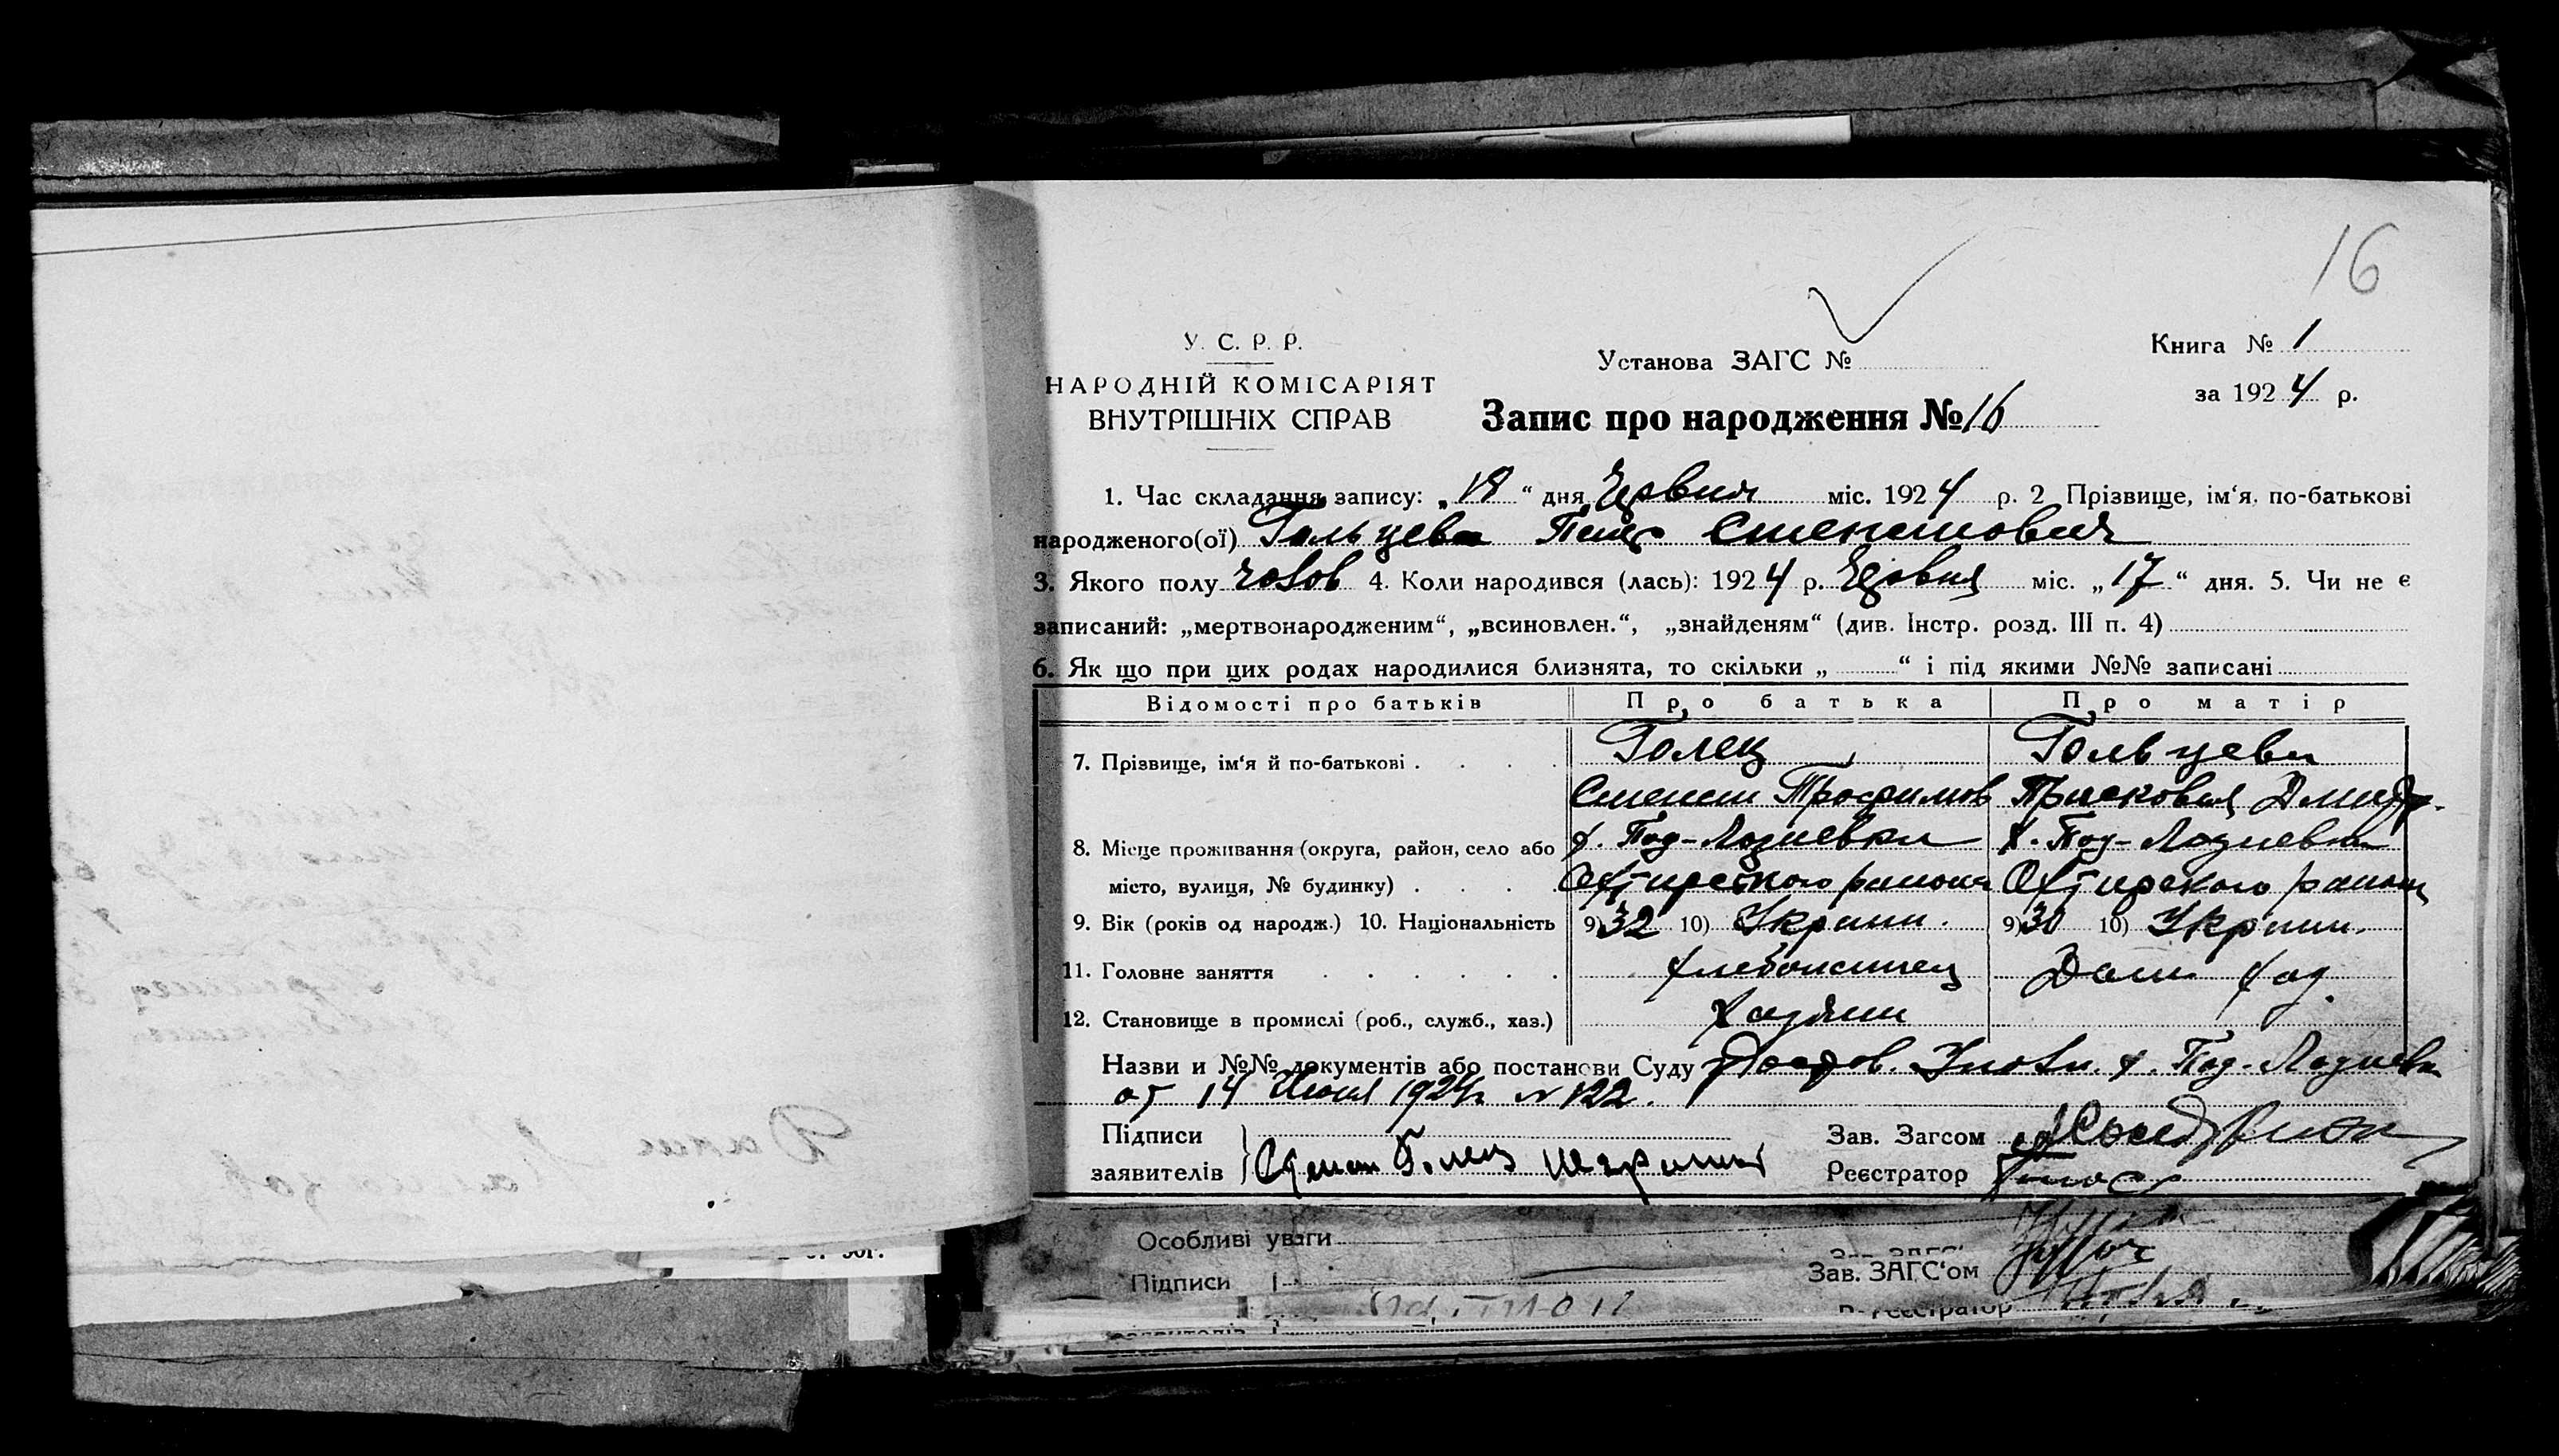 16
У. С. Р. Р.
НАРОДНІЙ КОМІСАРІЯТ
ВНУТРІШНІХ СПРАВ
Установа ЗАГС №
Книга № 1
за 1924 р.
Запис про народження № 16
1. Час складання запису: „18“ дня Червня міс. 1924 р. 2 Прізвище, ім‘я, по-батькові
народженого(ої) Гольцева Петр Степанович
3. Якого полу чолов 4. Коли народився (лась): 1924 р. Червня міс. „17“ дня. 5. Чи не є
записаний: „мертвонародженим“, „всиновлен.“, „знайденям“ (див. Інстр. розд. III п. 4)
6. Як що при цих родах народилися близнята, то скільки „ “ і під якими №№ записані
Відомості про батьків Про батька Про матір
7. Прізвище, ім‘я й по-батькові Голец Гольцева
Степан Трофимов Прасковия Дмитр.
8. Місце проживання (округа, район, село або х. Под-Лозиевка х. Под-Лозиевка
місто, вулиця, № будинку) Охтирского района Охтирского района
9. Вік (років од народж.) 10. Національність 9) 32 10) Украин. 9) 30 10) Украин.
11. Головне заняття хлебопашец Дом. хоз.
12. Становище в промислі (роб., служб., хаз.) Хазяин
Назви и №№ документів або постанови Суду х. Под-Лозиевка
от 14 Июня 1924 г № 122.
Підписи
заявителів Голец
Зав. Загсом
Реєстратор
Особливі уваги
Підписи
Зав. ЗАГС‘ом